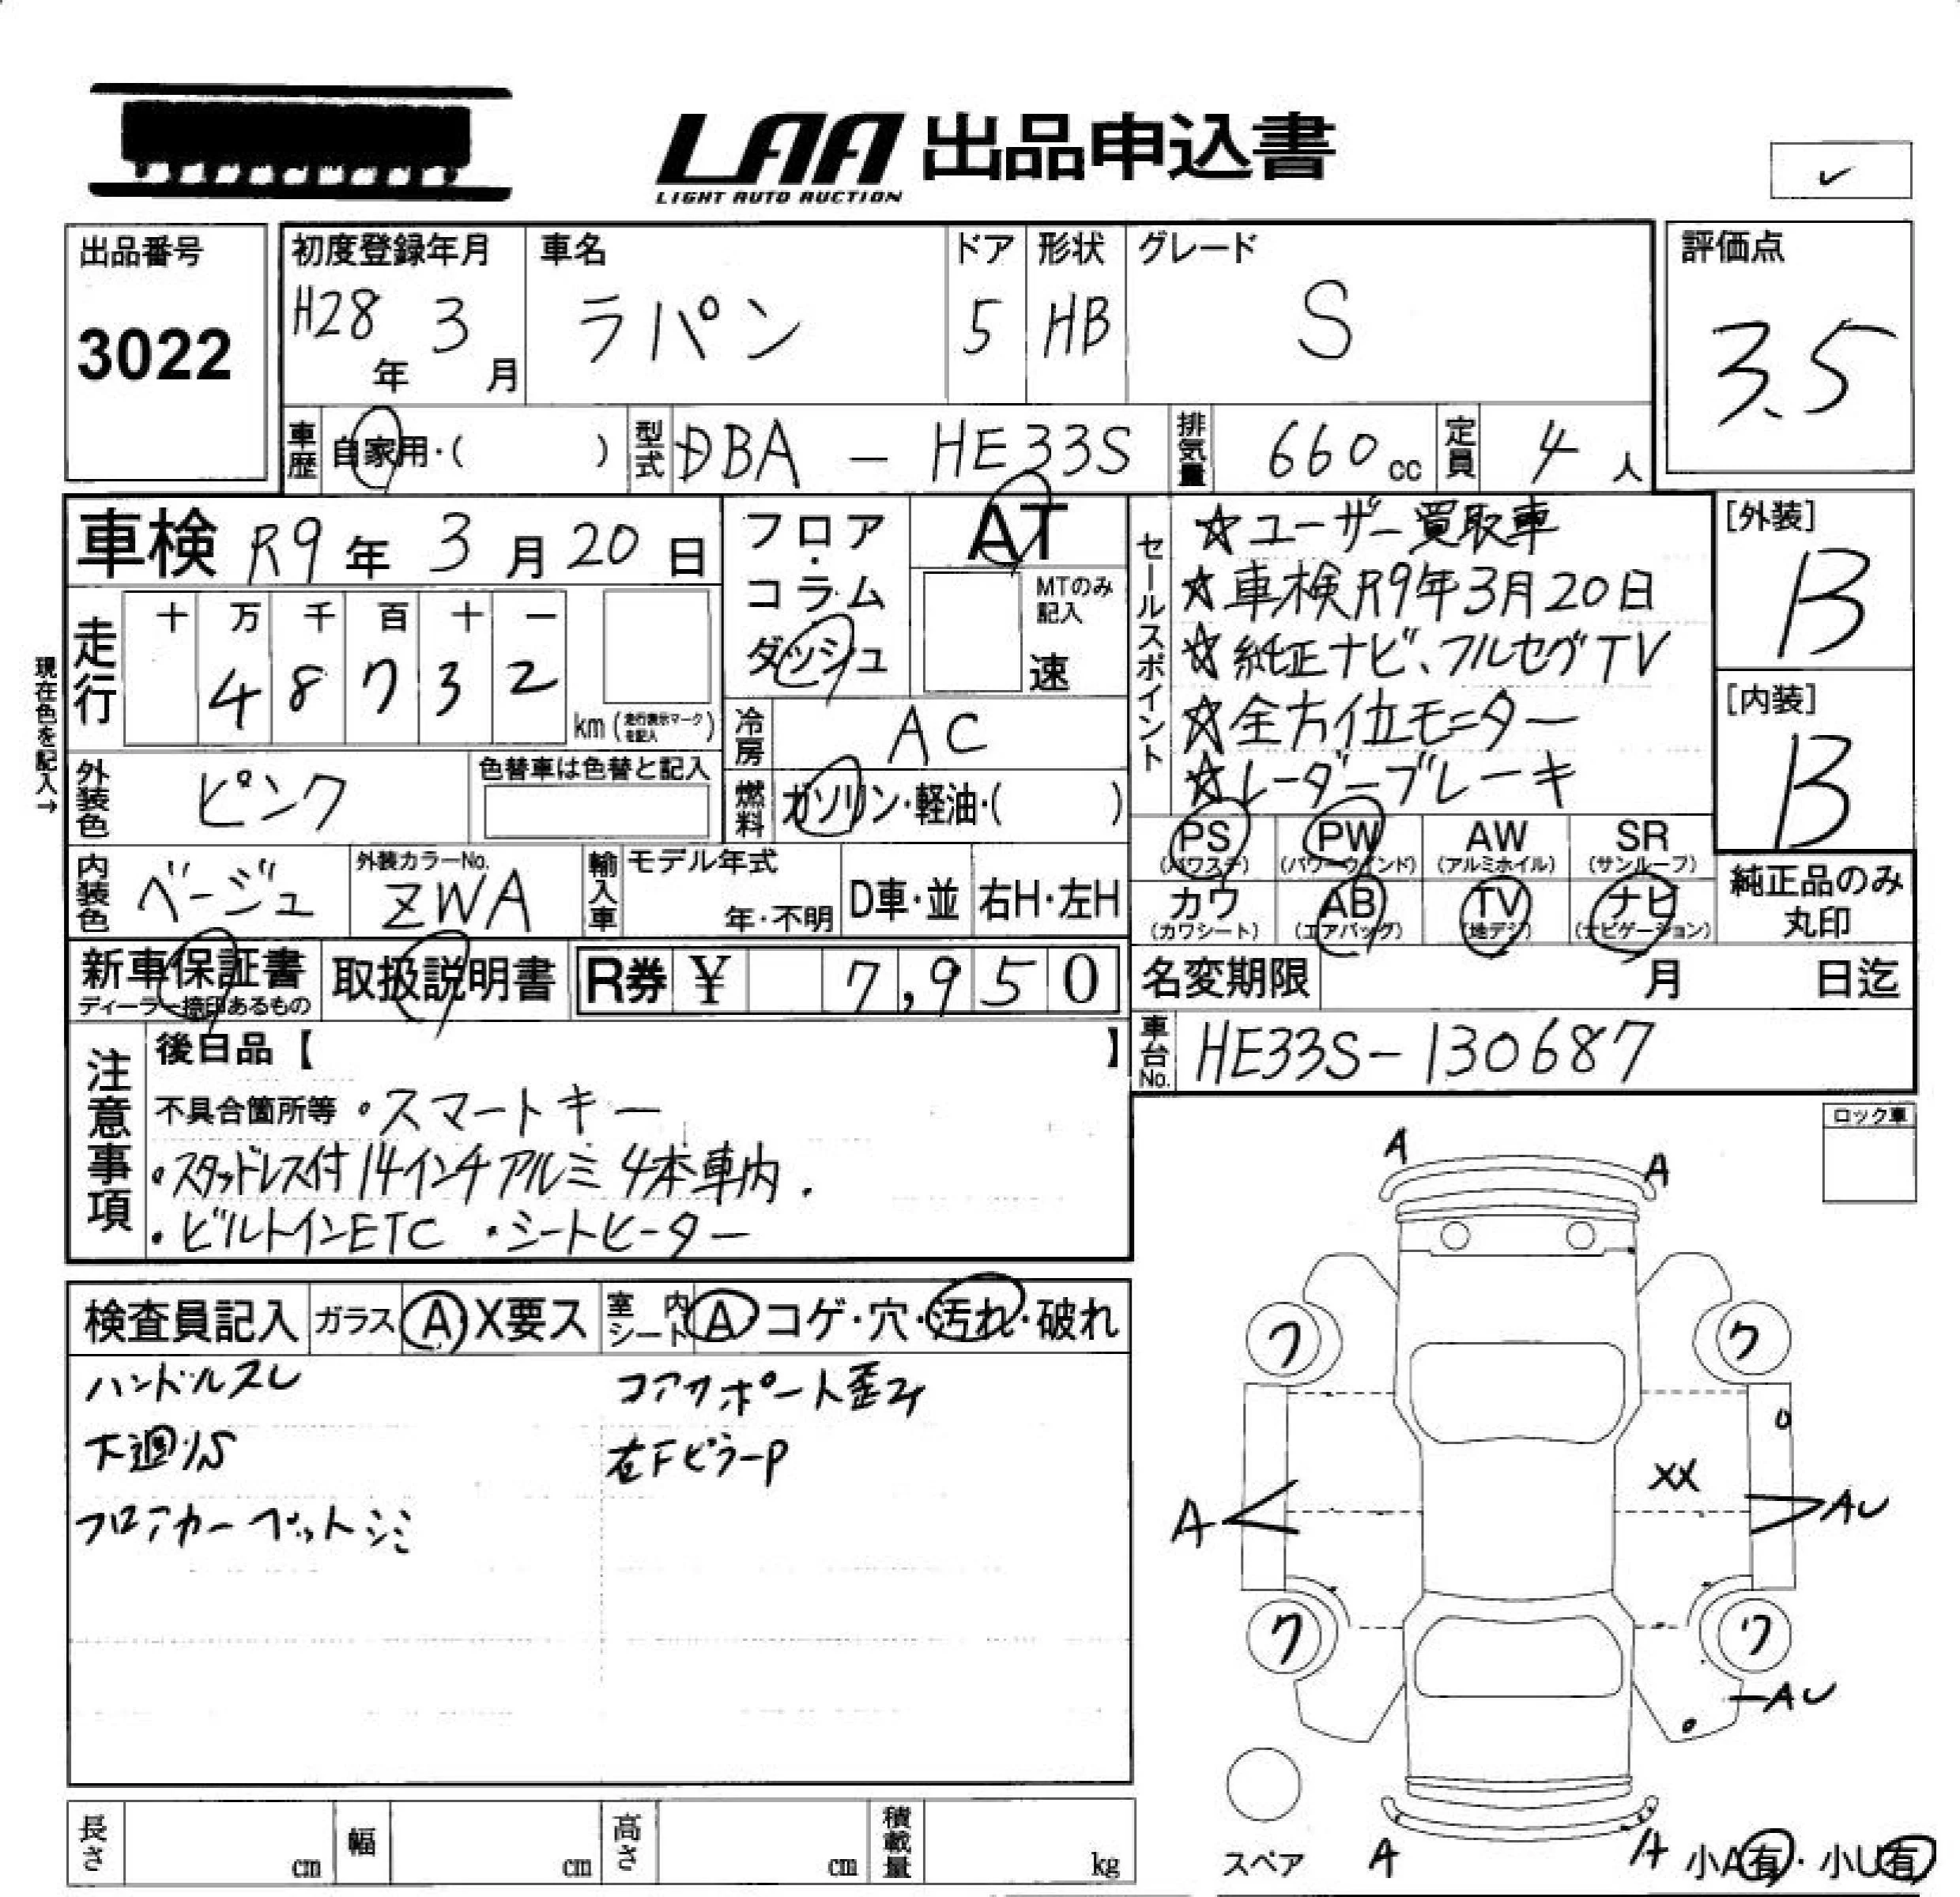 LAA 出品申込書
LIGHT AUTO AUCTION
✓
出品番号
3022
初度登録年月
H28年 3月
車名
ラパン
ドア
5
形状
HB
グレード
S
評価点
3.5
車歴 自家用・( )
型式 DBA - HE33S
排気量 660cc
定員 4人
車検 R9年 3月 20日
現在色を記入→
走行
十 万 千 百 十 一
4 8 7 3 2
km (走行表示マークを記入)
フロア・コラム
ダッシュ
AT
MTのみ記入
速
冷房 AC
燃料 ガソリン・軽油・( )
外装色 ピンク
色替車は色替と記入
内装色 ベージュ
外装カラーNo.
ZWA
輸入車 モデル年式
年・不明
D車・並
右H・左H
セールスポイント
☆ユーザー買取車
☆車検R9年3月20日
☆純正ナビ、フルセグTV
☆全方位モニター
☆レーダーブレーキ
[外装]
B
[内装]
B
PS (パワステ)
PW (パワーウインド)
AW (アルミホイル)
SR (サンルーフ)
カワ (カワシート)
AB (エアバッグ)
TV (地デジ)
ナビ (ナビゲーション)
純正品のみ
丸印
新車保証書
ディーラー捺印あるもの
取扱説明書
R券 ¥ 7,950
名変期限 月 日迄
車台No. HE33S-130687
注意事項
後日品【 】
不具合箇所等 ・スマートキー
・スタッドレス付14インチアルミ4本車内.
・ビルトインETC ・シートヒーター
ロック車
検査員記入
ガラス A X要ス
室内シート A コゲ・穴・汚れ・破れ
ハンドルスレ
下廻りS
フロアカーペットシミ
コアサポート歪み
右FピラーP
A
A
ワ
ワ
U
XX
A
AU
ワ
ワ
AU
スペア
A
A
小A有・小U有
長さ cm
幅 cm
高さ cm
積載量 kg